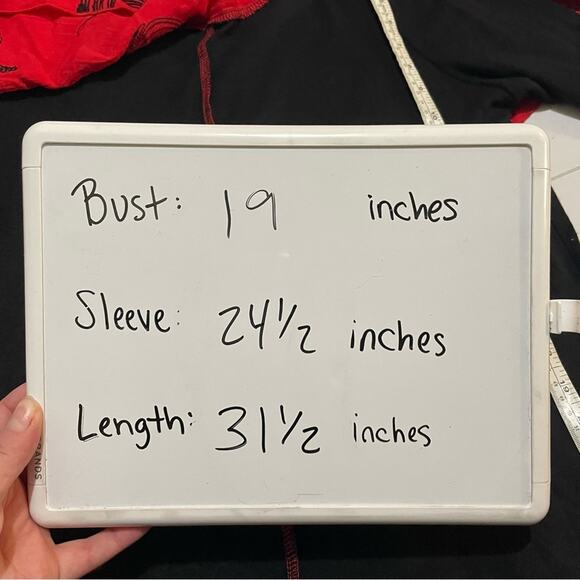 Bust: 19 inches
Sleeve: 24 1/2 inches
Length: 31 1/2 inches